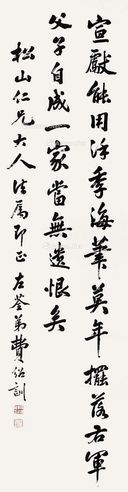 宣獻能用徐季海筆莫年擺落右軍
父子自成一家當無遺恨矣
松山仁兄大人法屬即正 左荃弟費紹訓